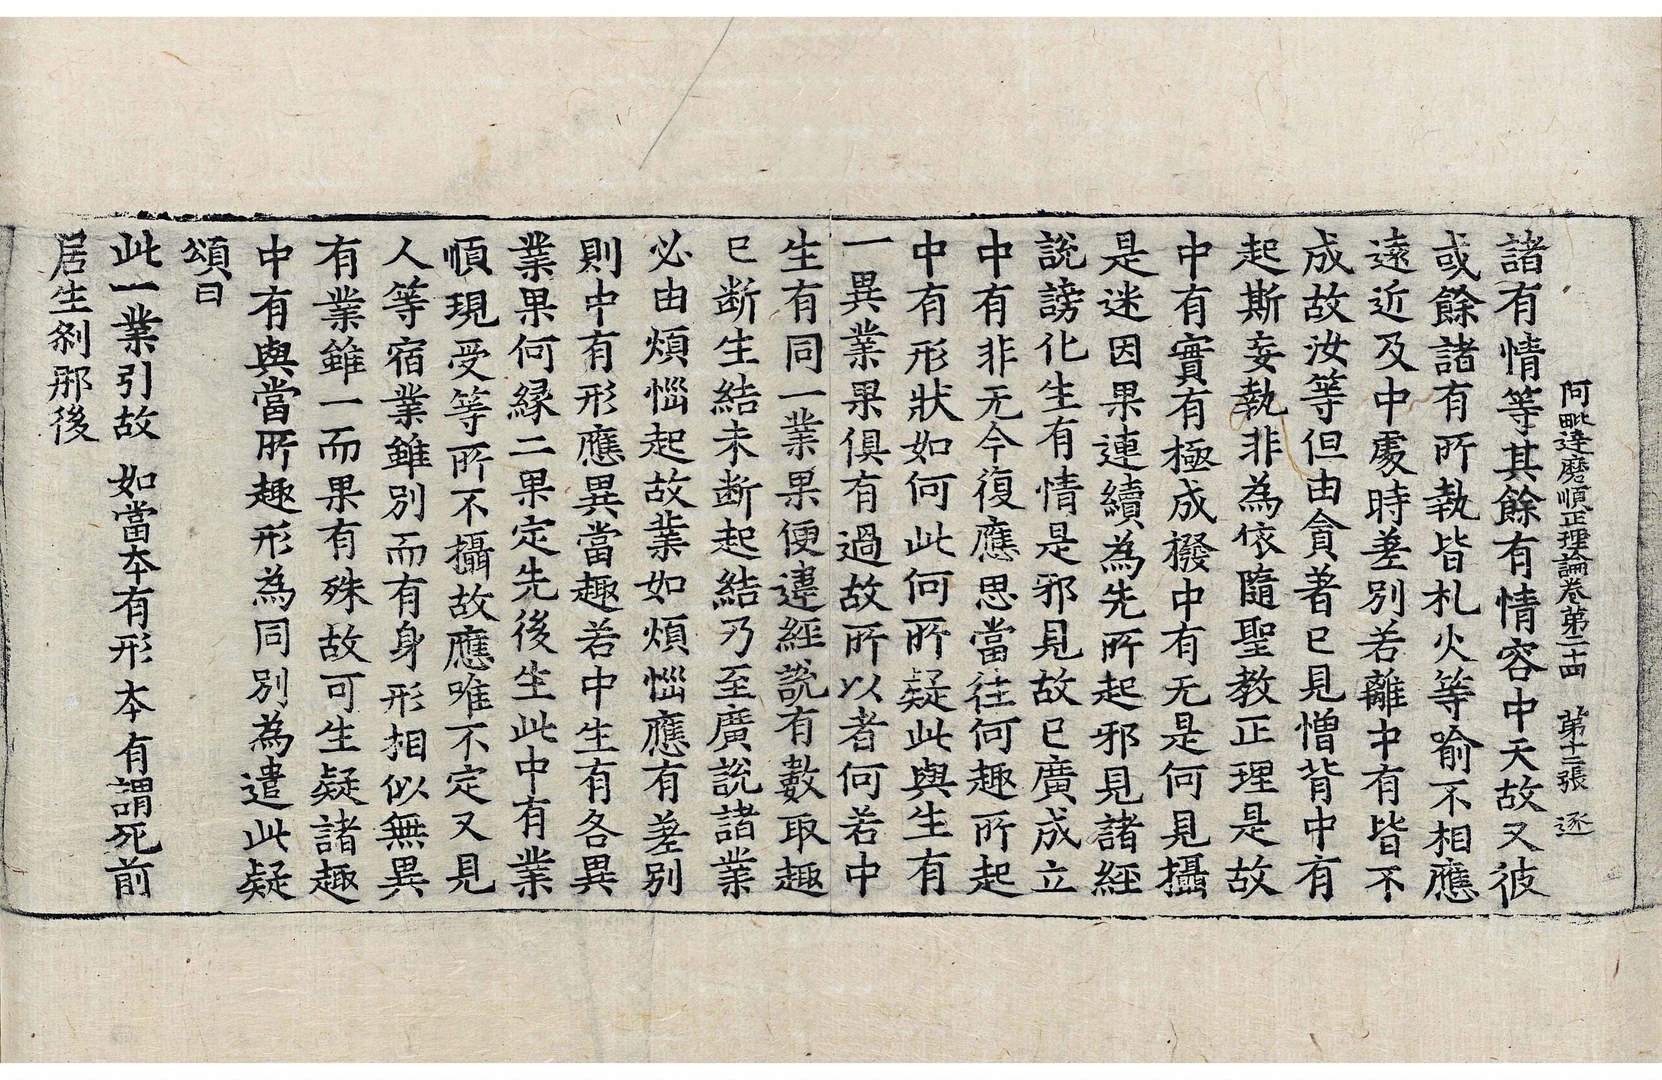 阿毗達磨順正理論卷第二十四 第十二張 逐
諸有情等其餘有情容中夭故又彼
或餘諸有所執皆札火等喻不相應
遠近及中處時差別若離中有皆不
成故汝等但由貪著已見憎背中有
起斯妄執非為依隨聖教正理是故
中有實有極成撥中有无是何見攝
是迷因果連續為先所起邪見諸經
說謗化生有情是邪見故已廣成立
中有非无今復應思當往何趣所起
中有形狀如何此何所疑此與生有
一異業果俱有過故所以者何若中
生有同一業果便違經說有數取趣
已斷生結未斷起結乃至廣說諸業
必由煩惱起故業如煩惱應有差別
則中有形應異當趣若中生有各異
業果何緣二果定先後生此中有業
順現受等所不攝故應唯不定又見
人等宿業雖別而有身形相似無異
有業雖一而果有殊故可生疑諸趣
中有與當所趣形為同別為遣此疑
頌曰
此一業引故 如當本有形 本有謂死前
居生剎那後